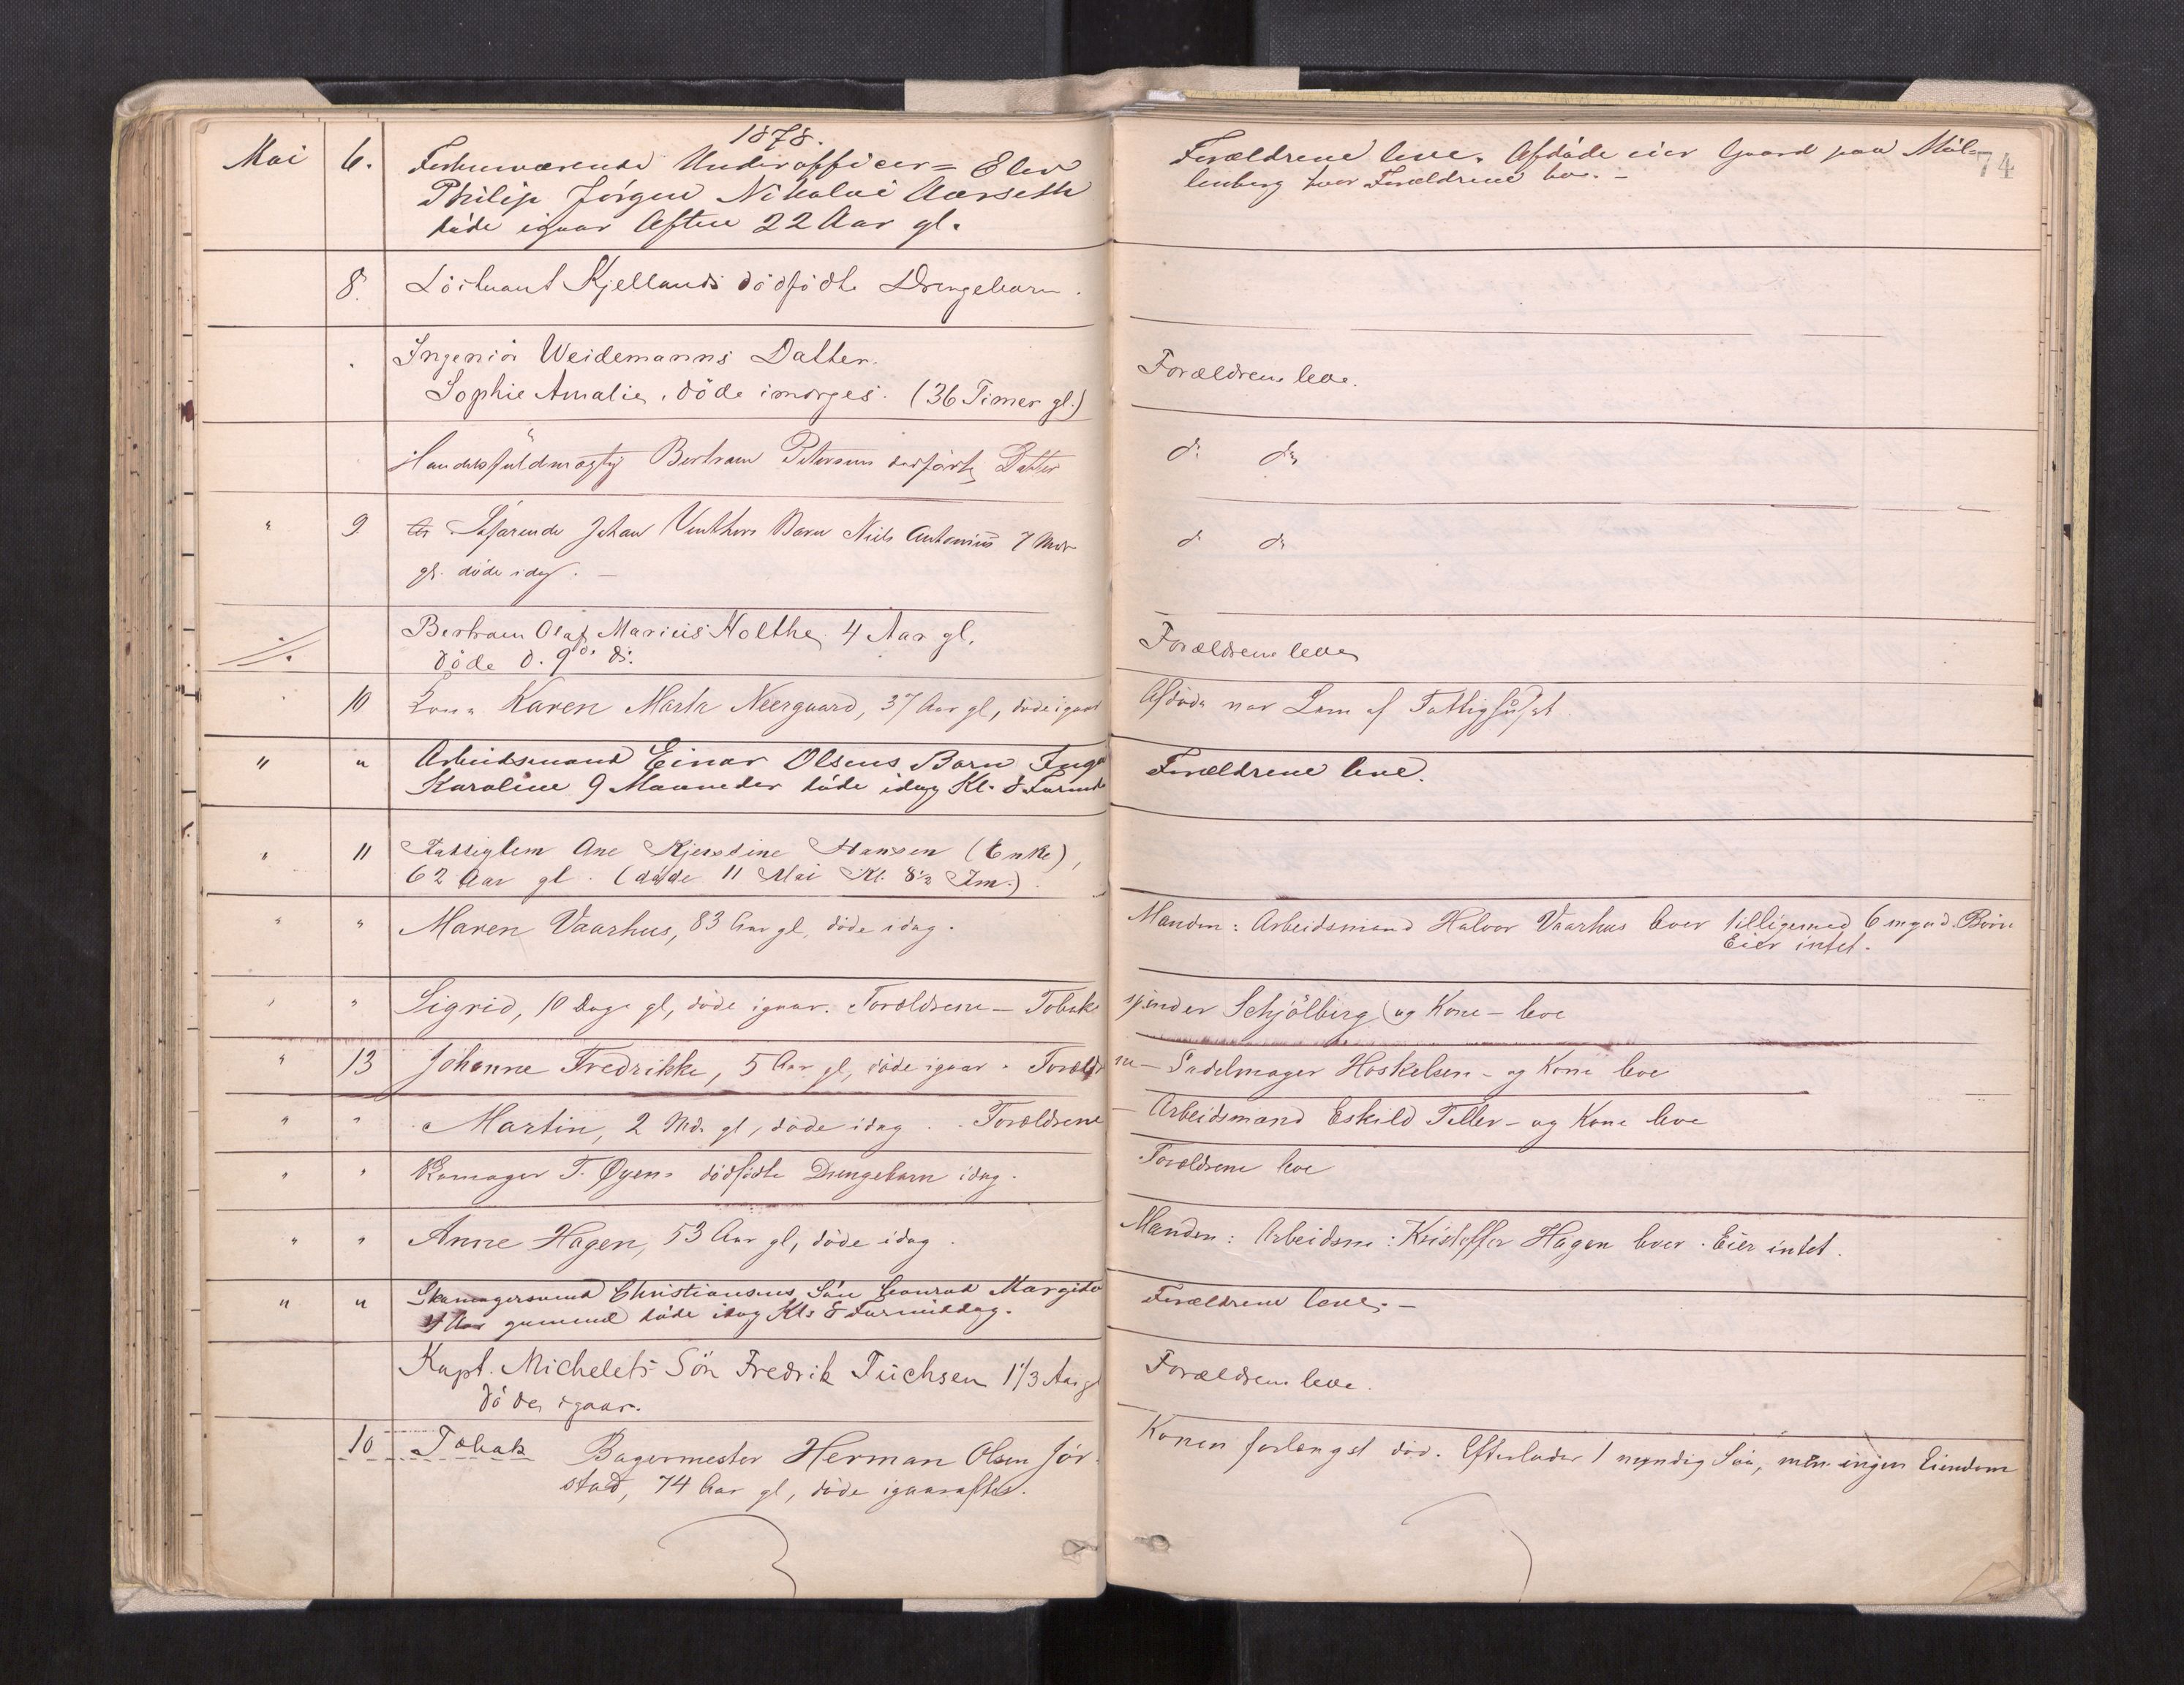 1878.
Mai 6. Forhenværende Underofficer= Elev
Philip Jörgen Nikolai Aarseth
döde igaar Aften 22 Aar gl.
Forældrene leve. Afdöde eier Gaard paa Möl-
lenberg hvor Forældrene bo. -
74
8. Löitnant Kjellands dödfödte Drengebarn.
Ingeniör Weidemanns Datter.
Sophie Amalie, döde imorges. (36 Timer gl.)
Forældrene leve.
Handelsfuldmægtig Bertram Petersens dødfødte Datter
do do
" 9. Johan Barn Niels Antonius 7 Mdr
gl. döde idag. -
do do
Bertram Olaf Marius Holthe, 4 Aar gl.
döde d. 9de ds.
Forældrene leve
" 10 Karen Marta Neergaard, 37 Aar gl, döde igaar
Afdöde var Lem af Fattighuset
" " Arbeidsmand Einar Olsens Barn Inga
Karoline 9 Maaneder döde idag Kl. 8 Formd
Forældrene leve.
" 11 Fattiglem Ane Kjerstine Hansen (Enke),
62 Aar gl. (döde 11 Mai Kl. 8½ Fm.).
" " Maren Vaarhus, 83 Aar gl, döde idag.
Manden: Arbeidsmand Halvor Vaarhus lever tilligemed 6 mynd. Börn
Eier intet.
" " Sigrid, 10 Dage gl, döde igaar. Forældrene - Tobak
spinder Schjölberg og Kone - leve
" 13 Johanne Fredrikke, 5 Aar gl, döde igaar. Foræld
ne - Sadelmager Hoskelsen - og Kone leve
" " Martin, 2 Md. gl, döde idag. Forældrene
- Arbeidsmand Eskild Tiller - og Kone leve
" " T. Øyens dödfödte Drengebarn idag.
Forældrene leve
" " Anne Hagen, 53 Aar gl, döde idag.
Manden: Arbeidsm: Kristoffer Hagen lever. Eier intet.
" " Skomagersvend Christiansens Sön Conrad Margido
4 Aar gammel döde idag Kl. 8 Formiddag.
Forældrene leve. -
Kapt. Michelets Sön Fredrik Tüchsen 1 1/3 Aar gl
döde igaar.
Forældrene leve.
10 Tobak Bagermester Herman Olsen Jör-
stad, 74 Aar gl, döde igaaraftes.
Konen forlængst död. Efterlader 1 myndig Sön, men ingen Eiendom